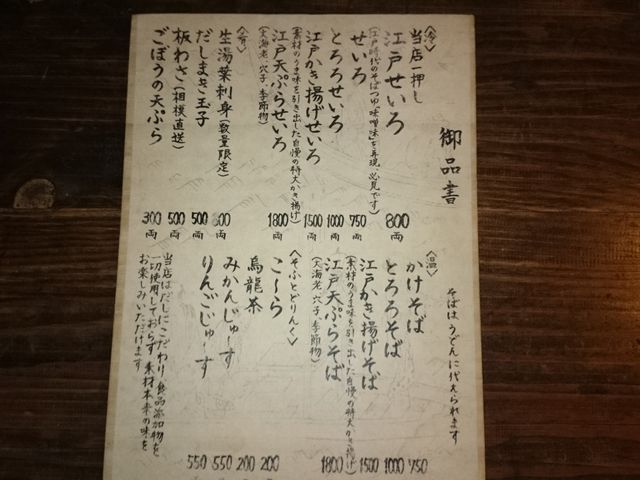 御品書
〈冷〉
当店一押し
江戸せいろ 800両
(江戸時代のそばつゆ「味噌味」を再現、必見です)
せいろ 750両
とろろせいろ 1000両
江戸かき揚げせいろ 1500両
(素材のうま味を引き出した自慢の特大かき揚げ)
江戸天ぷらせいろ 1800両
(大海老、穴子、季節物)
〈肴〉
生湯葉刺身(数量限定) 600両
だしまき玉子 500両
板わさ(相模直送) 500両
ごぼうの天ぷら 300両
そばはうどんに代えられます
〈温〉
かけそば 750
とろろそば 1000
江戸かき揚げそば 1500
(素材のうま味を引き出した自慢の特大かき揚げ)
江戸天ぷらそば 1800
(大海老、穴子、季節物)
〈そふとどりんく〉
こ〜ら 200
烏龍茶 200
みかんじゅ〜す 550
りんごじゅ〜す 550
当店はだしにこだわり、食品添加物を
一切使用しておらず、素材本来の味を
お楽しみいただけます